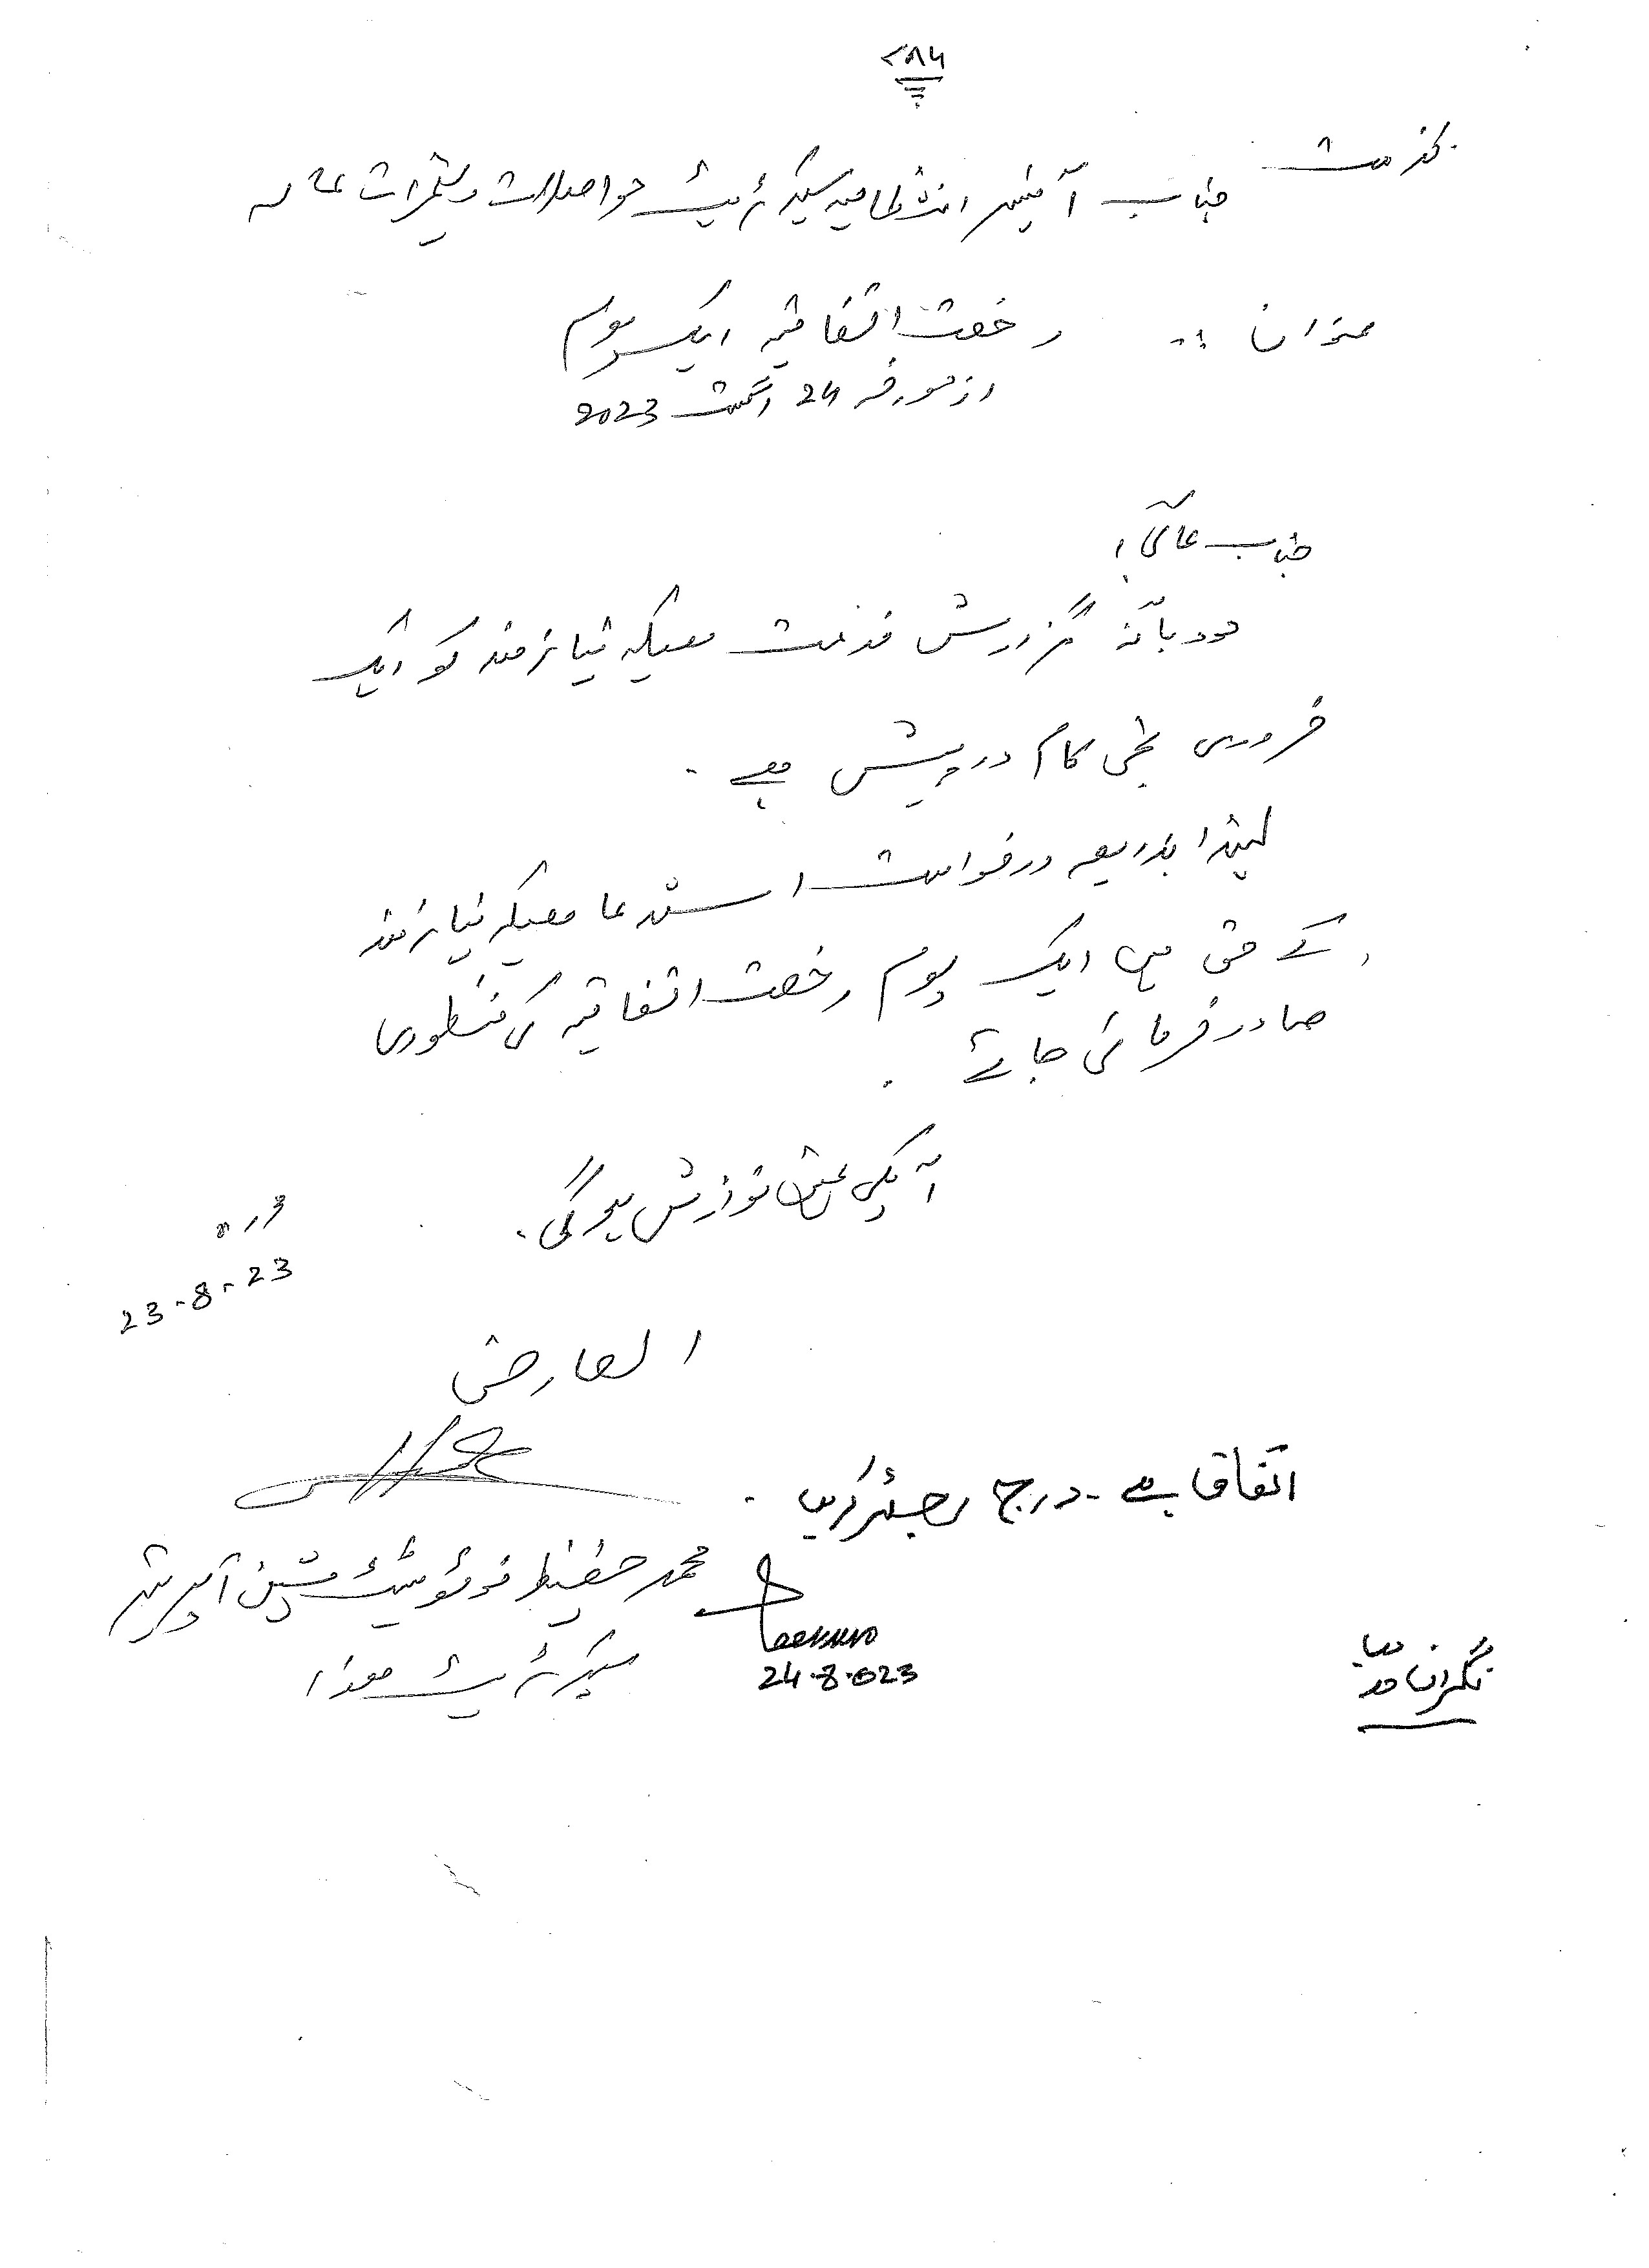 ۷۸۶
بخدمت جناب آفیسر انتظامیہ سیکرٹریٹ مواصلات و تعمیرات عامہ
عنوان :- رخصت اتفاقیہ ایک یوم
از مورخہ 24 اگست 2023
جناب عالی!
مودبانہ گزارش خدمت ہیکہ نیازمند کو ایک
ضروری نجی کام درپیش ہے۔
لہذا بذریعہ درخواست استدعا ہیکہ نیازمند
کے حق میں ایک یوم رخصت اتفاقیہ کی منظوری
صادر فرمائی جائے۔
آپکی عین نوازش ہوگی۔
23-8-23
العارض
محمد حفیظ فوٹوسٹیٹ مشین آپریٹر
سیکرٹریٹ ہذا
اتفاق ہے۔ درج رجسٹر کریں۔
24.8.023
نگران